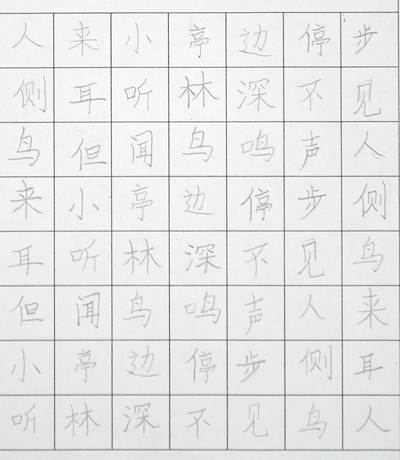 人来小亭边停步
侧耳听林深不见
鸟但闻鸟鸣声人
来小亭边停步侧
耳听林深不见鸟
但闻鸟鸣声人来
小亭边停步侧耳
听林深不见鸟人